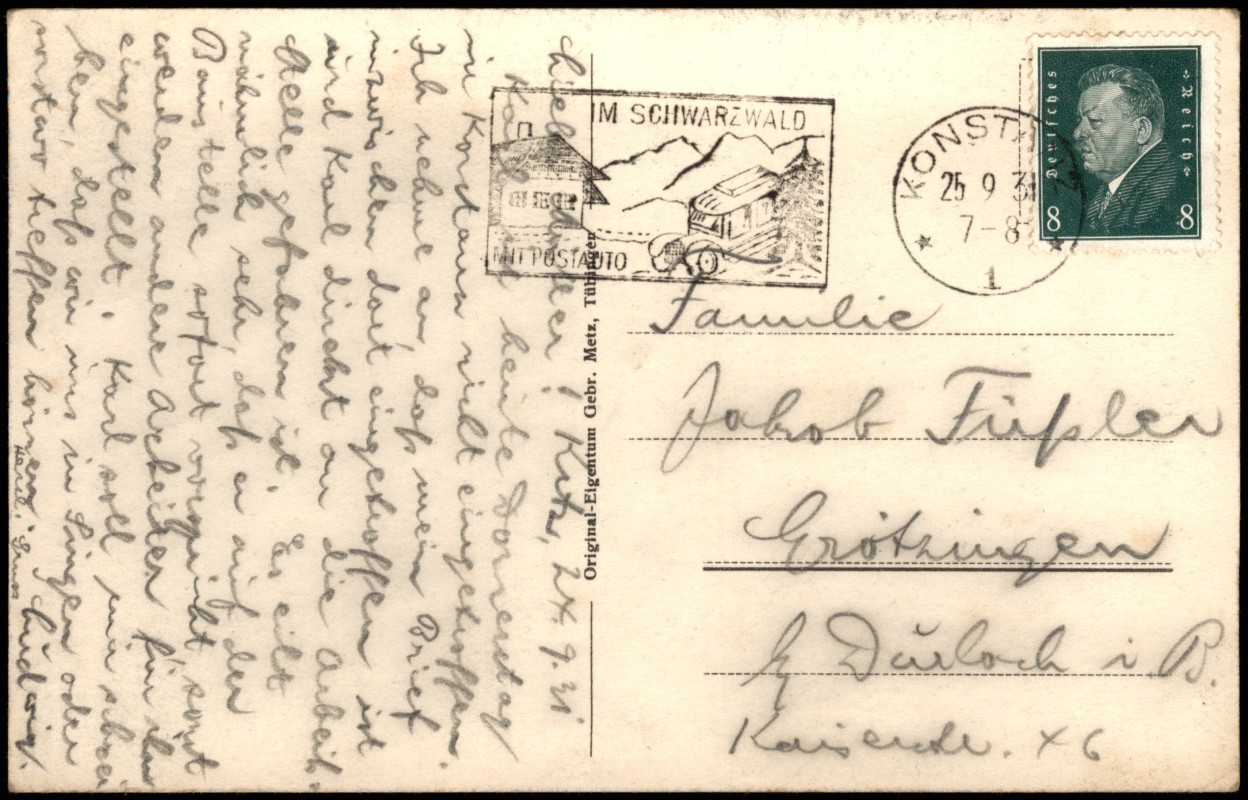 Liebe Kinder! Ktz, 24. 9. 31
Karl ist heute Donnerstag
in Konstanz nicht eingetroffen.
Ich nehme an, daß mein Brief
inzwischen dort eingetroffen ist
und Karl direkt an die Arbeits-
stelle gefahren ist. Es eilt
nämlich sehr, daß er auf der
Baustelle sofort vorspricht, sonst
werden andere Arbeiter für ihn
eingestellt. Karl soll mir schrei
ben, daß wir uns in Singen oder
sonstwo treffen können.
Herzl. Gruss Ludwig.
Original-Eigentum Gebr. Metz, Tübingen
IM SCHWARZWALD
MIT POSTAUTO
KONSTANZ
25 9 31
7-8
1
Deutsches Reich
8 8
Familie
Jakob Füßler
Grötzingen
b/ Durlach i B.
Kaiserstr. 76